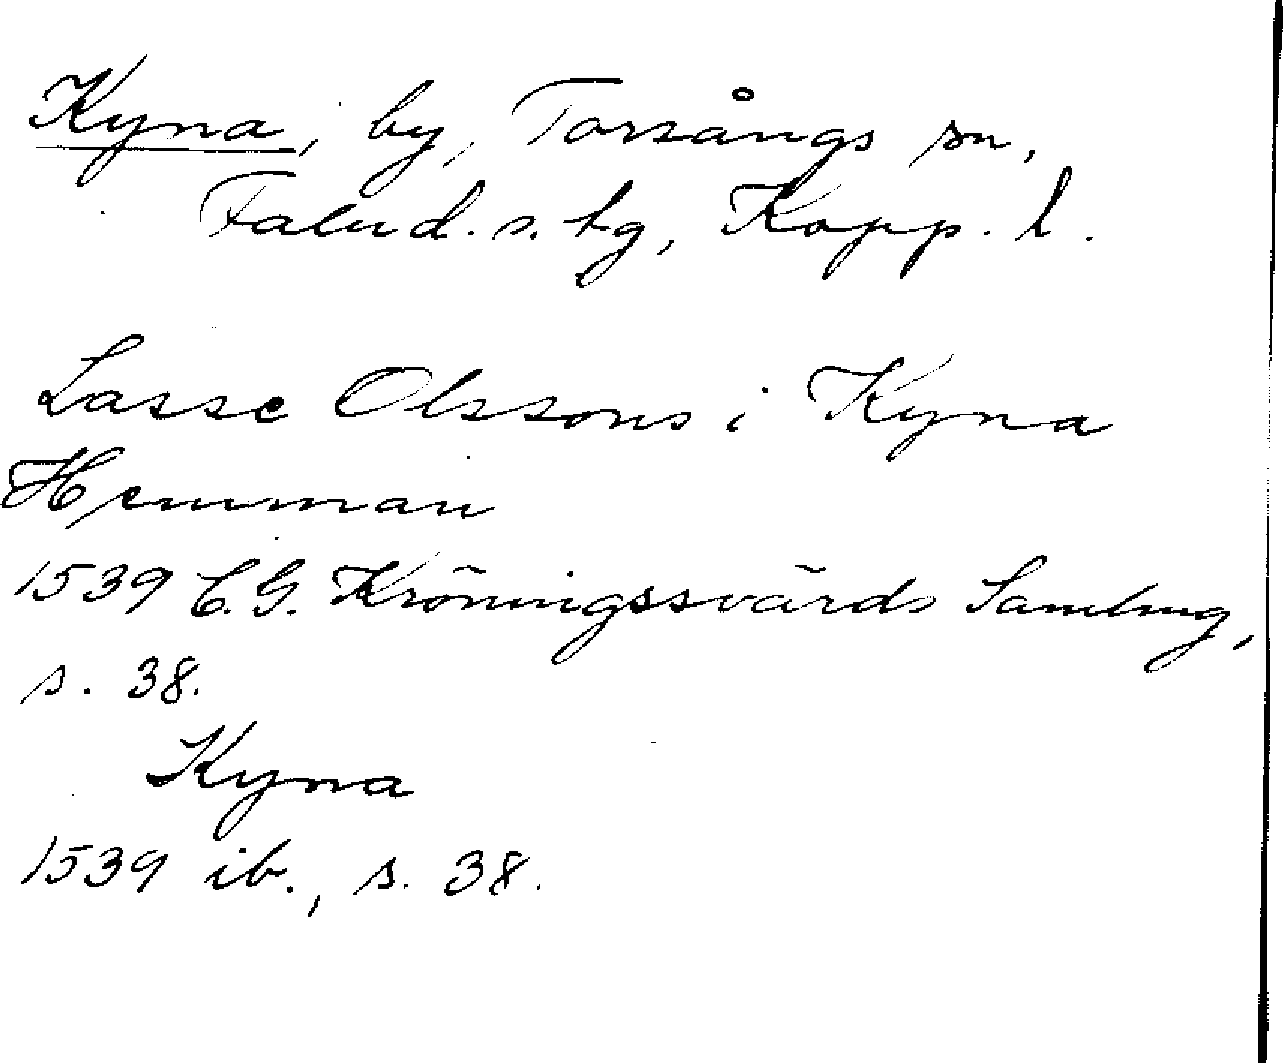 Kyna, by, Torsångs sn,
Falud. s. tg, Kopp. l.
Lasse Olssons i Kyna
Hemman
1539 C. G. Kröningssvärds Samling,
s. 38.
Kyna
1539 ib., s. 38.